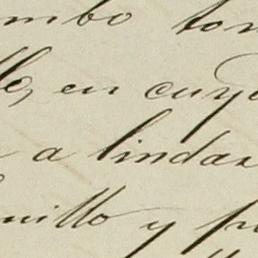 mbo ton
lle, en cuyo
a lindar
nillo y p